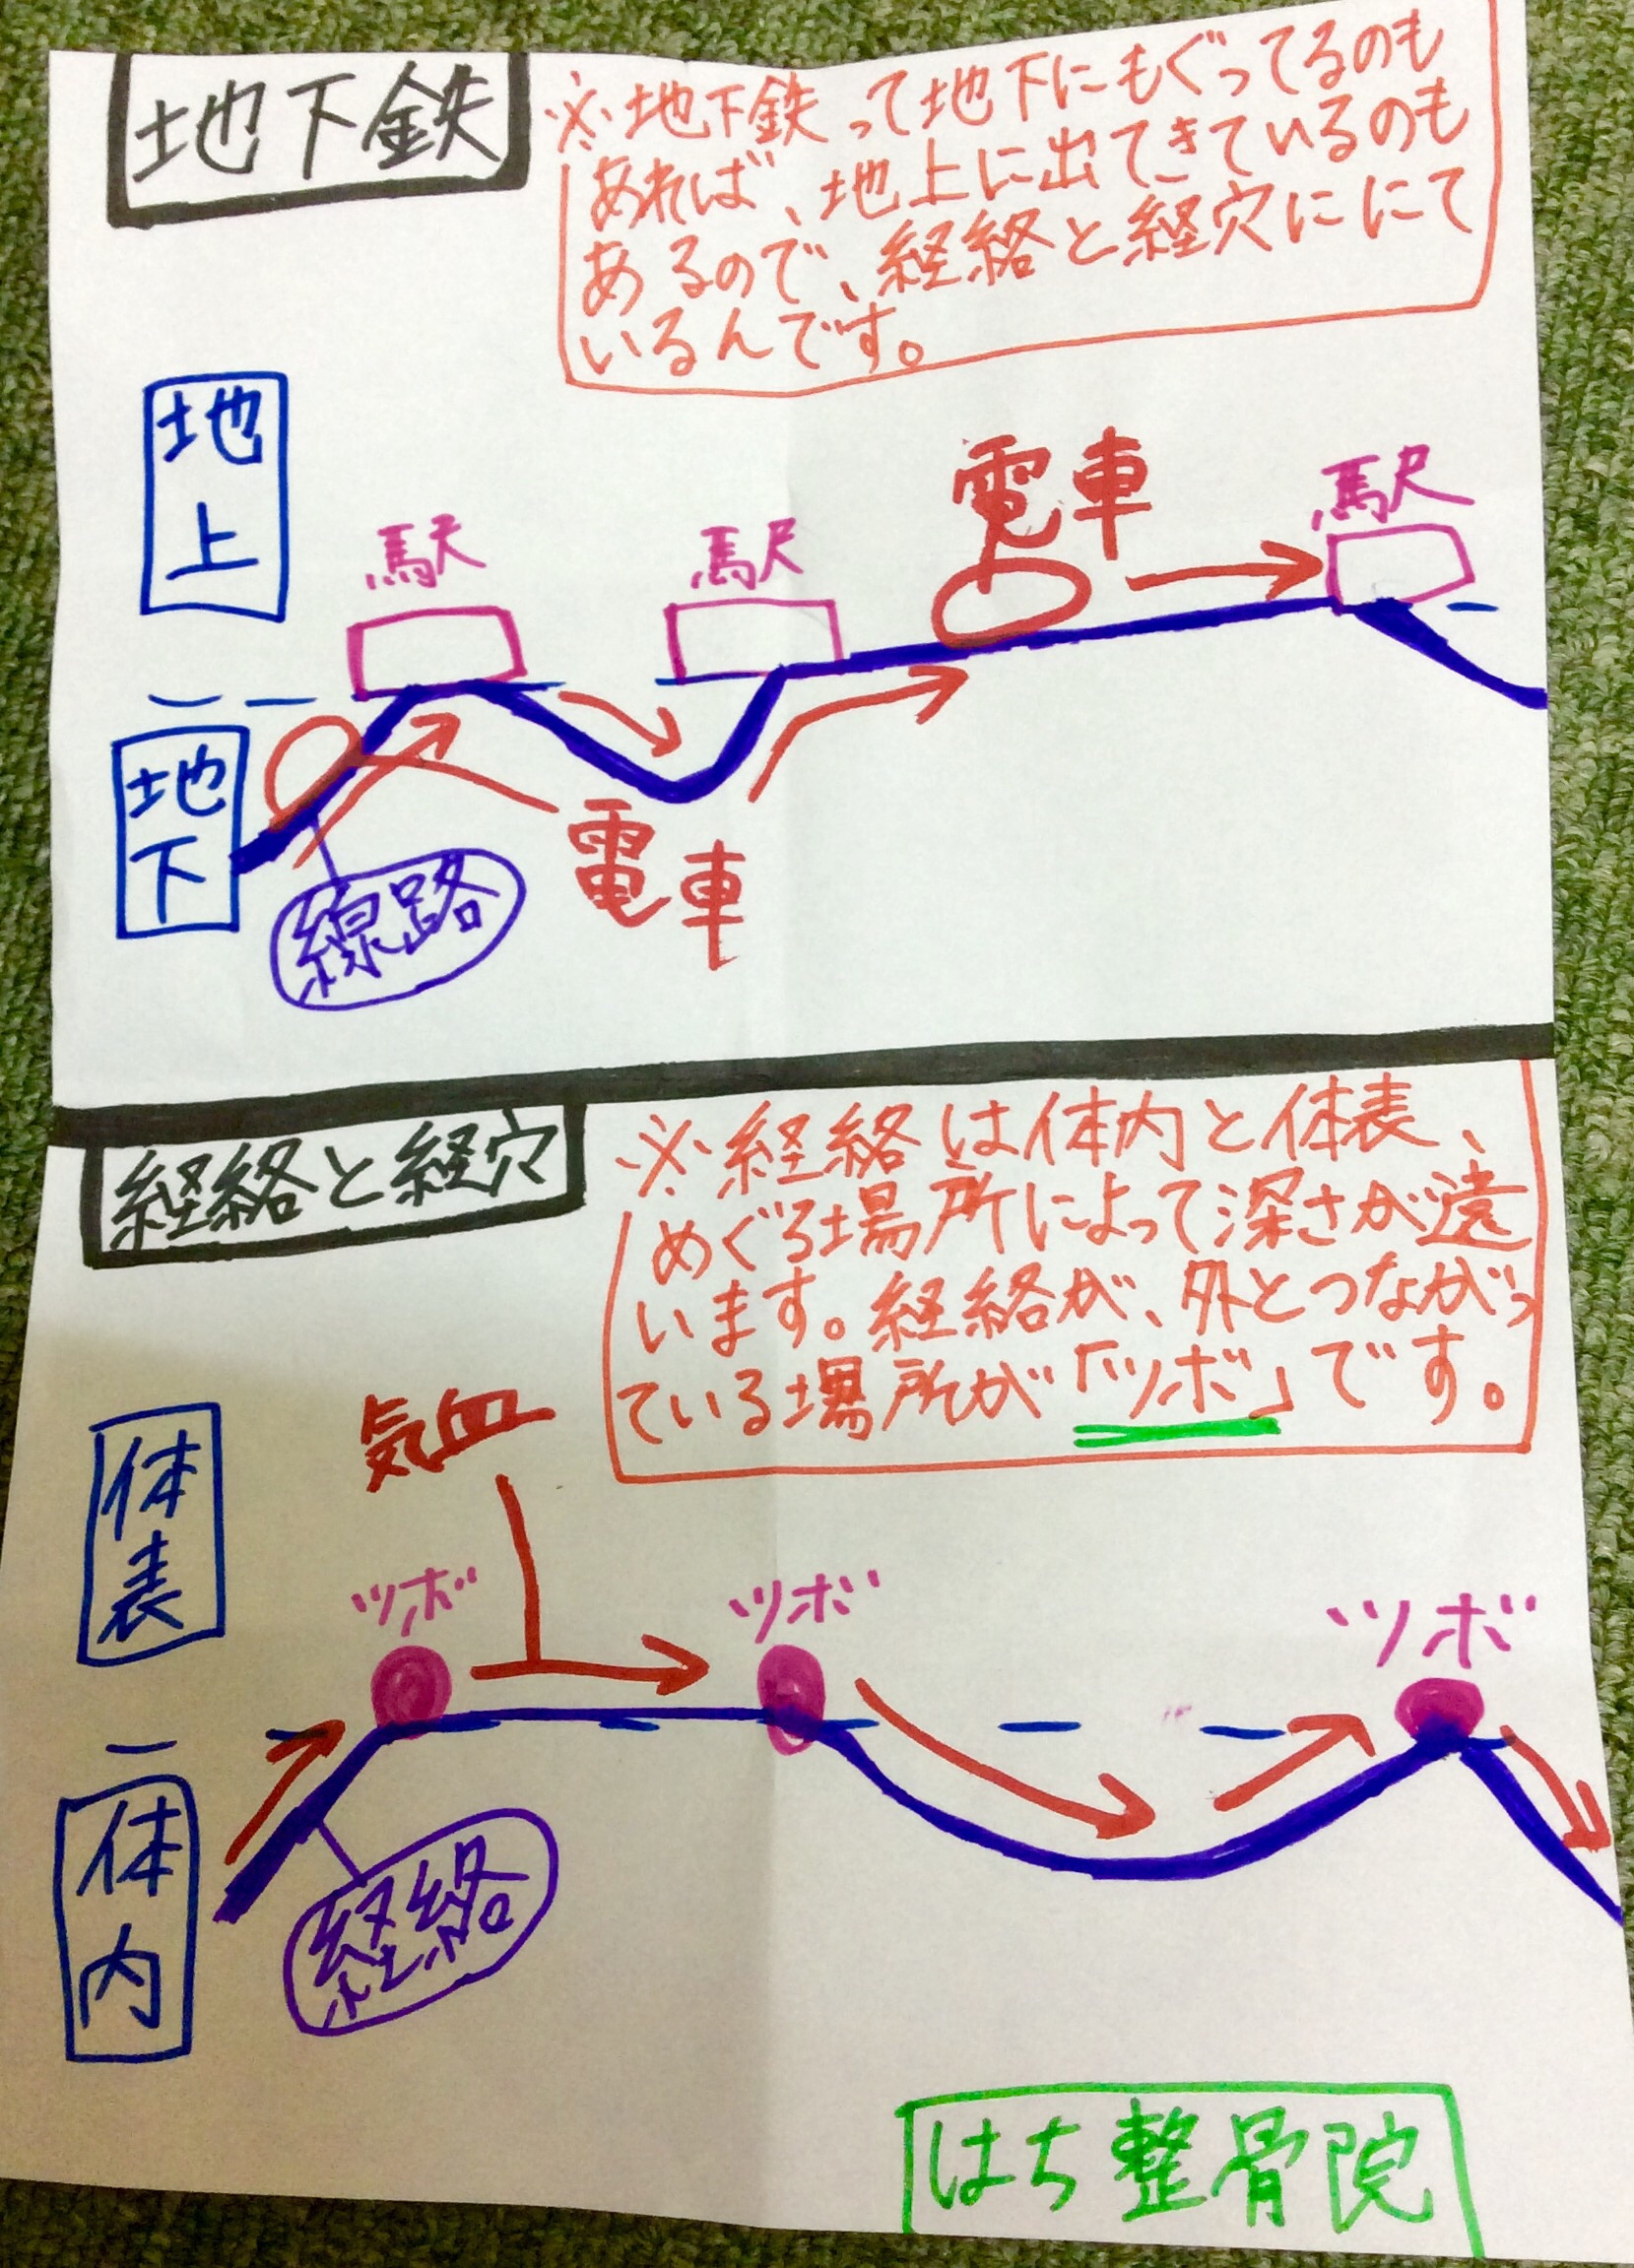 地下鉄
※地下鉄って地下にもぐってるのも
あれば、地上に出てきているのも
あるので、経絡と経穴ににて
いるんです。
地上
駅
駅
電車
駅
地下
線路
電車
経絡と経穴
※経絡は体内と体表、
めぐる場所によって深さが違
います。経絡が、外とつながっ
ている場所が「ツボ」です。
気血
体表
ツボ
ツボ
ツボ
体内
経絡
はち整骨院